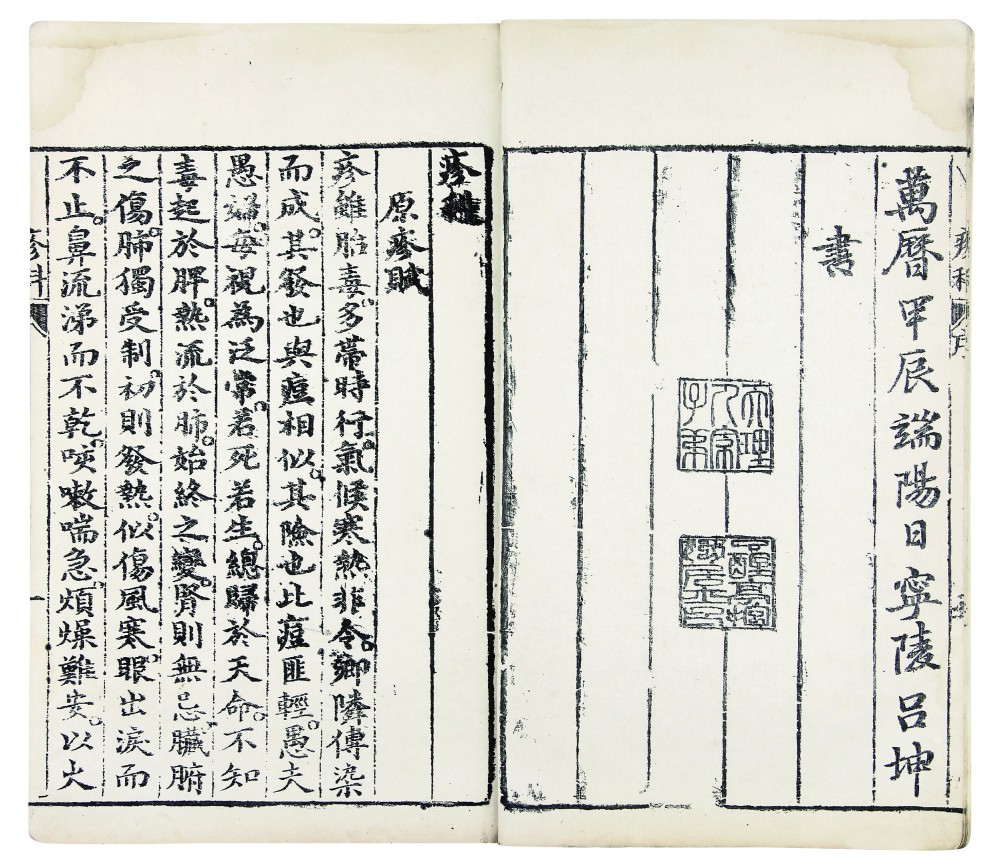 萬曆甲辰端陽日寧陵呂坤
書
大理
人家
子弟
疹科
原疹賦
疹雖胎毒。多帶時行。氣候寒熱。非令。鄉隣傳染
而成。其發也與痘相似。其險也比痘匪輕。愚夫
愚婦。每視為泛常。若死若生。總歸於天命。不知
毒起於脾。熱流於肺。始終之變。腎則無忌。臟腑
之傷。肺獨受制。初則發熱。似傷風寒。眼出淚而
不止。鼻流涕而不乾。咳嗽喘急。煩燥難安。以火
疹科
一